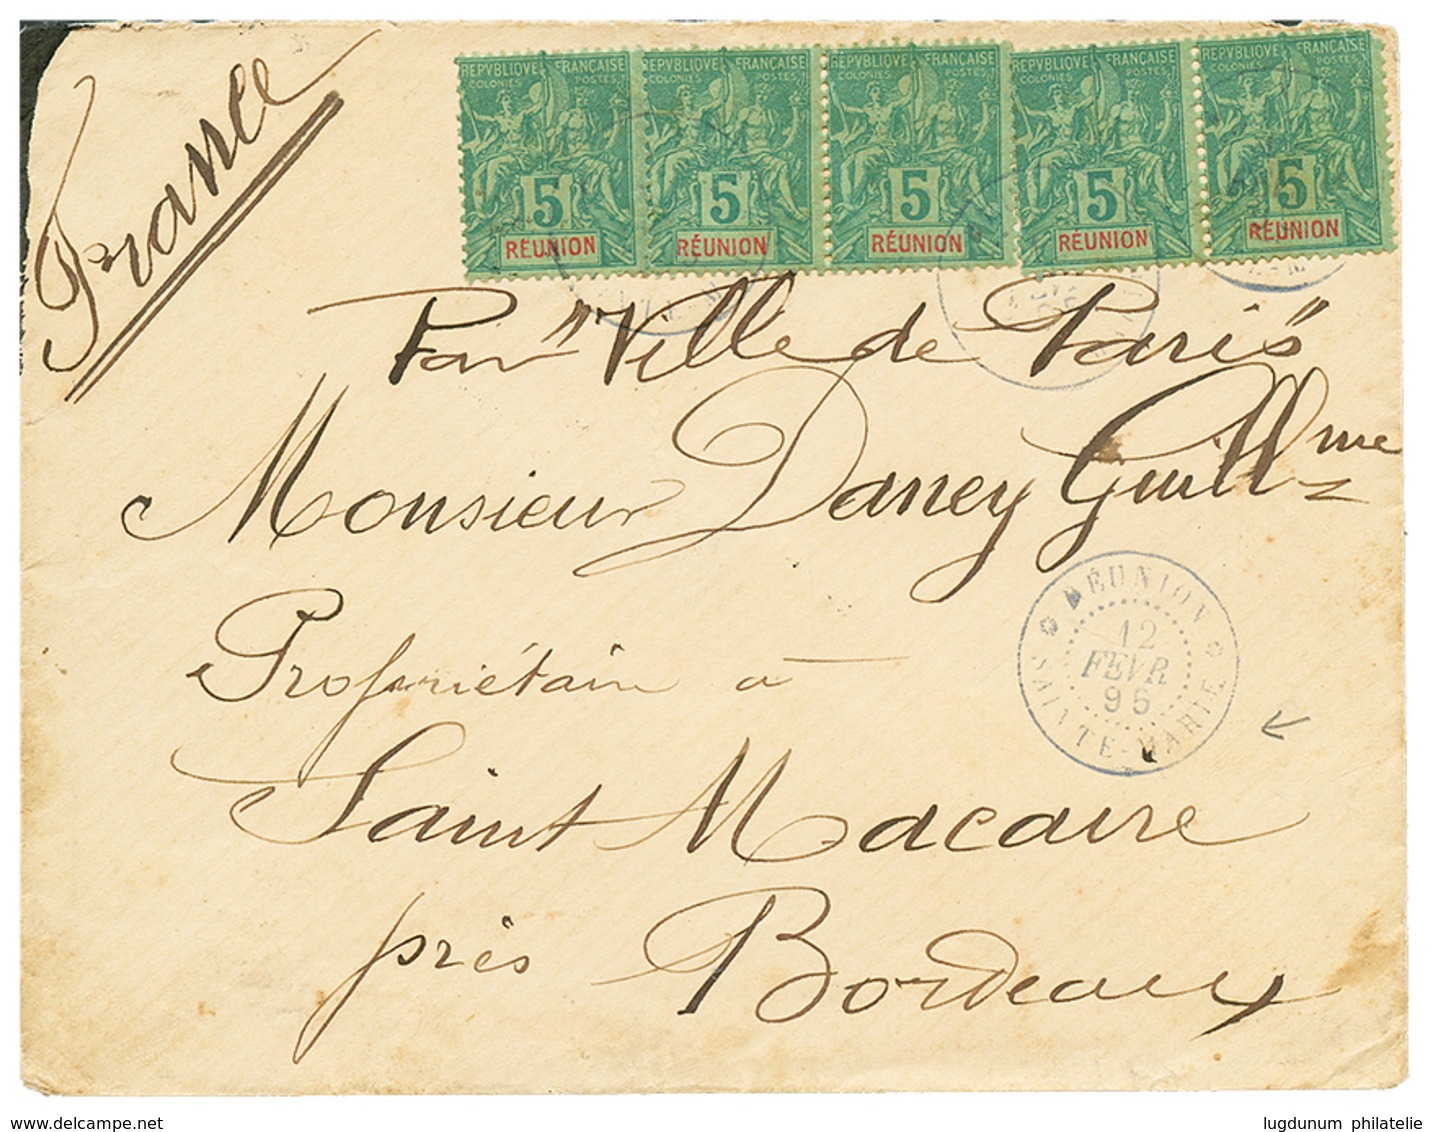 France
REPVBLIQUE FRANÇAISE REPVBLIQUE FRANÇAISE REPVBLIQUE FRANÇAISE REPVBLIQUE FRANÇAISE REPVBLIQUE FRANÇAISE
COLONIES POSTES COLONIES POSTES COLONIES POSTES COLONIES POSTES COLONIES POSTES
5 5 5 5 5
RÉUNION RÉUNION RÉUNION RÉUNION RÉUNION
Par "Ville de Paris"
Monsieur Daney Guillme
Propriétaire à
Saint Macaire
près Bordeaux
RÉUNION
12
FEVR
95
SAINTE-MARIE
delcampe.net
lugdunum philatelie